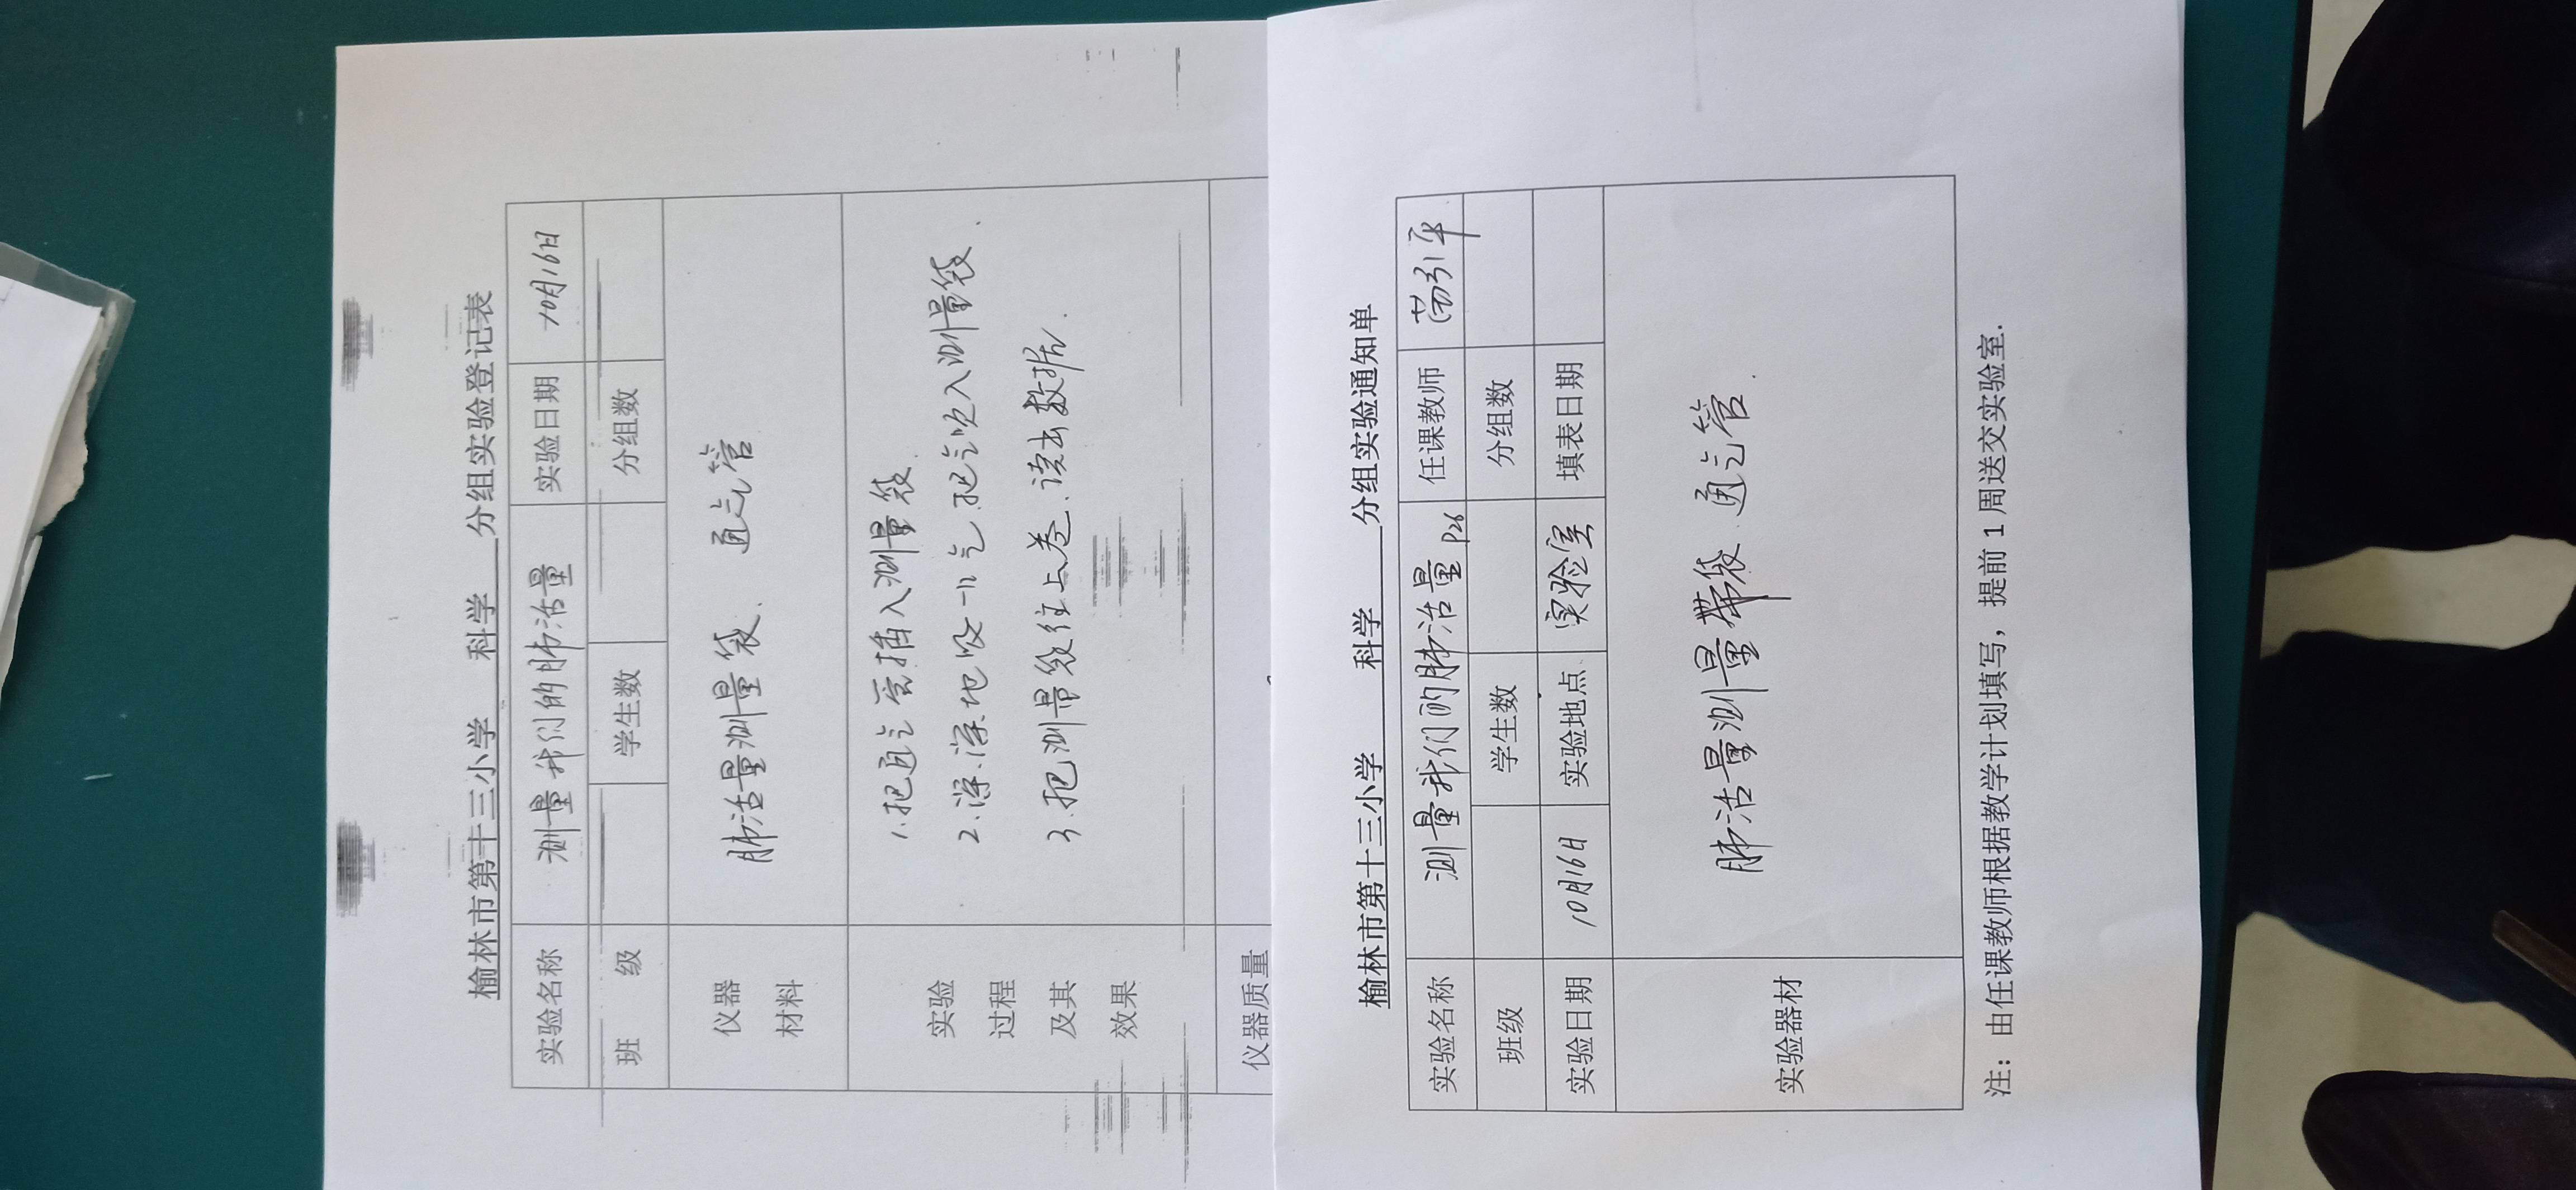 榆林市第十三小学 科学 分组实验登记表
实验名称 测量我们的肺活量 实验日期 10月16日
班 级 学生数 分组数
仪器 材料 肺活量测量袋、通气管
实验 过程 及其 效果
1.把通气管插入测量袋.
2.深深地吸一口气.把气吹入测量袋.
3.把测量袋往上卷.读出数据.
仪器质量
榆林市第十三小学 科学 分组实验通知单
实验名称 测量我们的肺活量 P26 任课教师 引平
班级 学生数 分组数
实验日期 10月16日 实验地点 实验室 填表日期
实验器材 肺活量测量带袋.通气管.
注：由任课教师根据教学计划填写，提前1周送交实验室.